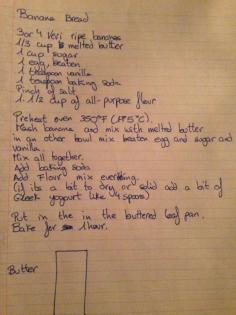 Banana Bread
3 or 4 Veri ripe bananas
1/3 cup melted butter
1 cup sugar
1 egg, beaten
1 teaspoon vanilla
1 teaspoon baking soda
Pinch of salt
1 1/2 cup of all-purpose flour
Preheat oven 350°F (175°C).
Mash banana and mix with melted butter
in an other bowl mix beaten egg and sugar and
vanilla.
Mix all together.
Add baking soda
Add Flour mix everything.
(if its a bit to dry or solid add a bit of
Greek yogourt like 4 spoons)
Put in the in the buttered loaf pan.
Bake for 1 hour.
Butter